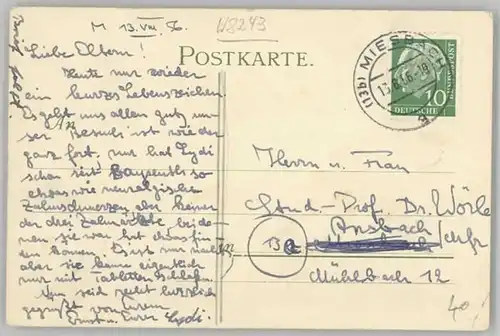 M 13.VIII 56.
W8243
Liebe Eltern!
POSTKARTE.
Heute nur wieder
ein kurzes Lebenszeichen.
Es geht uns allen gut, un-
ser Besuch ist wieder
ganz fort. nur hat Lydi
schon seit Bayreuth so
etwas wie neuralgische
Zahnschmerzen aber keiner
der drei Zahnärzte bei
denen sie war hat
können.
aber sie kann eigentlich
nur mit Tabletten schlafen.
Nun seid recht herzlich
gegrüßt von Eurem
Ernst u. Eurer Lydi.
(13b) MIESBACH
13.8.56.-18
DEUTSCHE BUNDESPOST
10
Herrn u. Frau
Stud-Prof. Dr. Wörle
Ansbach
13a
Mühlbach 12
40,-